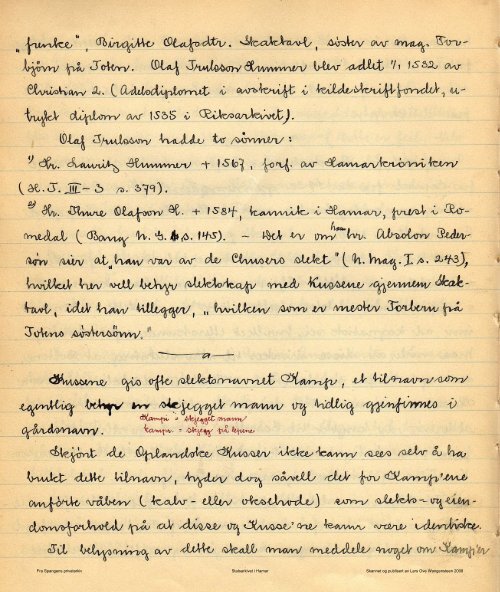 „frenke", Birgitte Olafsdtr. Skaktavl, søster av mag. Tor-
bjørn på Toten. Olaf Trulsson Hummer blev adlet 7/1 1532 av
Christian 2. (Adelsdiplomet i avskrift i kildeskriftfondet, u-
trykt diplom av 1535 i Riksarkivet).
Olaf Trulsson hadde to sønner:
1) Hr. Lauritz Hummer + 1567, forf. av Hamarkrøniken
(H.T. III-3 s. 379).
2) Hr. Thure Olafson H. + 1584, kannik i Hamar, prest i Ro-
medal (Bang N.G. s. 145). - Det er om ham hr. Absolon Peder-
søn sier at „han var av de Chusers slekt" (N. Mag. I s. 243),
hvilket her vell betyr slektskap med Kussene gjennem Skak-
tavl, idet han tillegger, „hvilken som er mester Torbern på
Totens søstersønn."
a
Kussene gis ofte slektsnavnet Kamp, et tilnavn som
egentlig betyr en skjegget mann og tidlig gjenfinnes i
gårdsnavn.
Kampi = skjegget mann
kampr = skjegg på lepene
Skjønt de Oplandske Kusser ikke kann sees selv å ha
brukt dette tilnavn, tyder dog såvell det for Kamp'ene
anførte våben (kalv- eller oksehode) som slekts- og eien-
domsforhold på at disse og Kusse'ne kann være identiske.
Til belysning av dette skall man meddele noget om Kamp'er
Fra Spangens privatarkiv
Statsarkivet i Hamar
Skannet og publisert av Lars Ove Wangensteen 2008